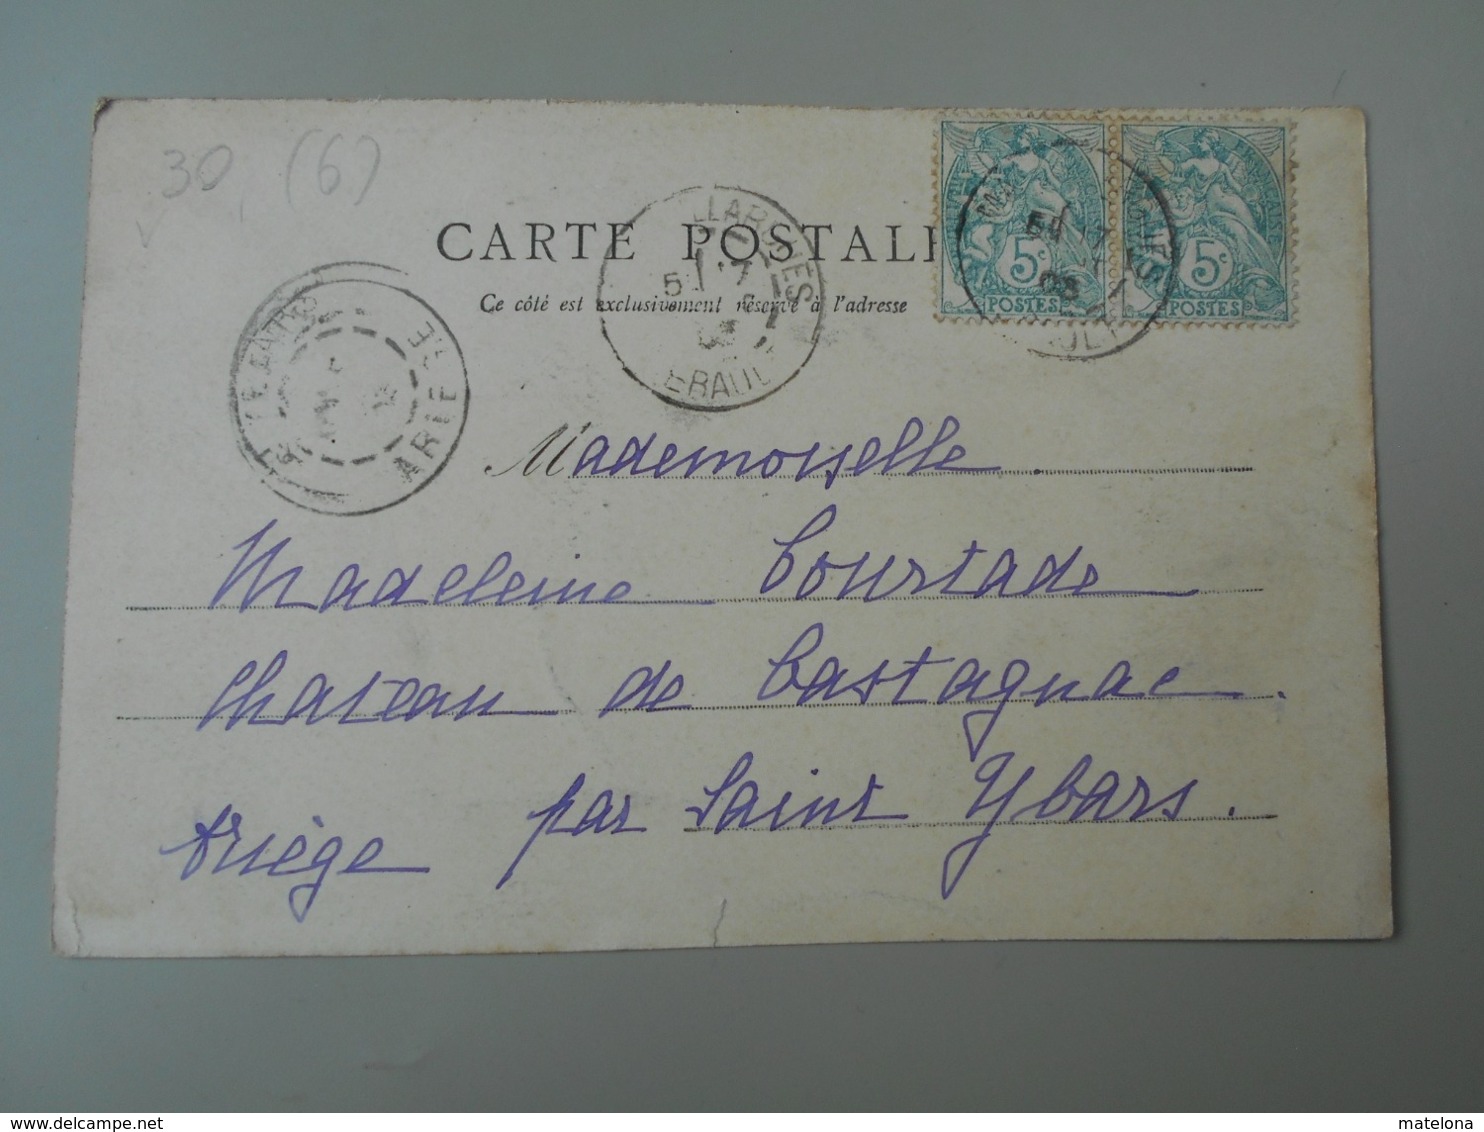 30 (6)
CARTE POSTALE
Ce côté est exclusivement réservé à l'adresse
5c
POSTES
5c
POSTES
ARIEGE
Mademoiselle
Madeleine Courtade
Chateau de Castagnac.
par Saint Ybars.
Ariège
www.delcampe.net
matelona